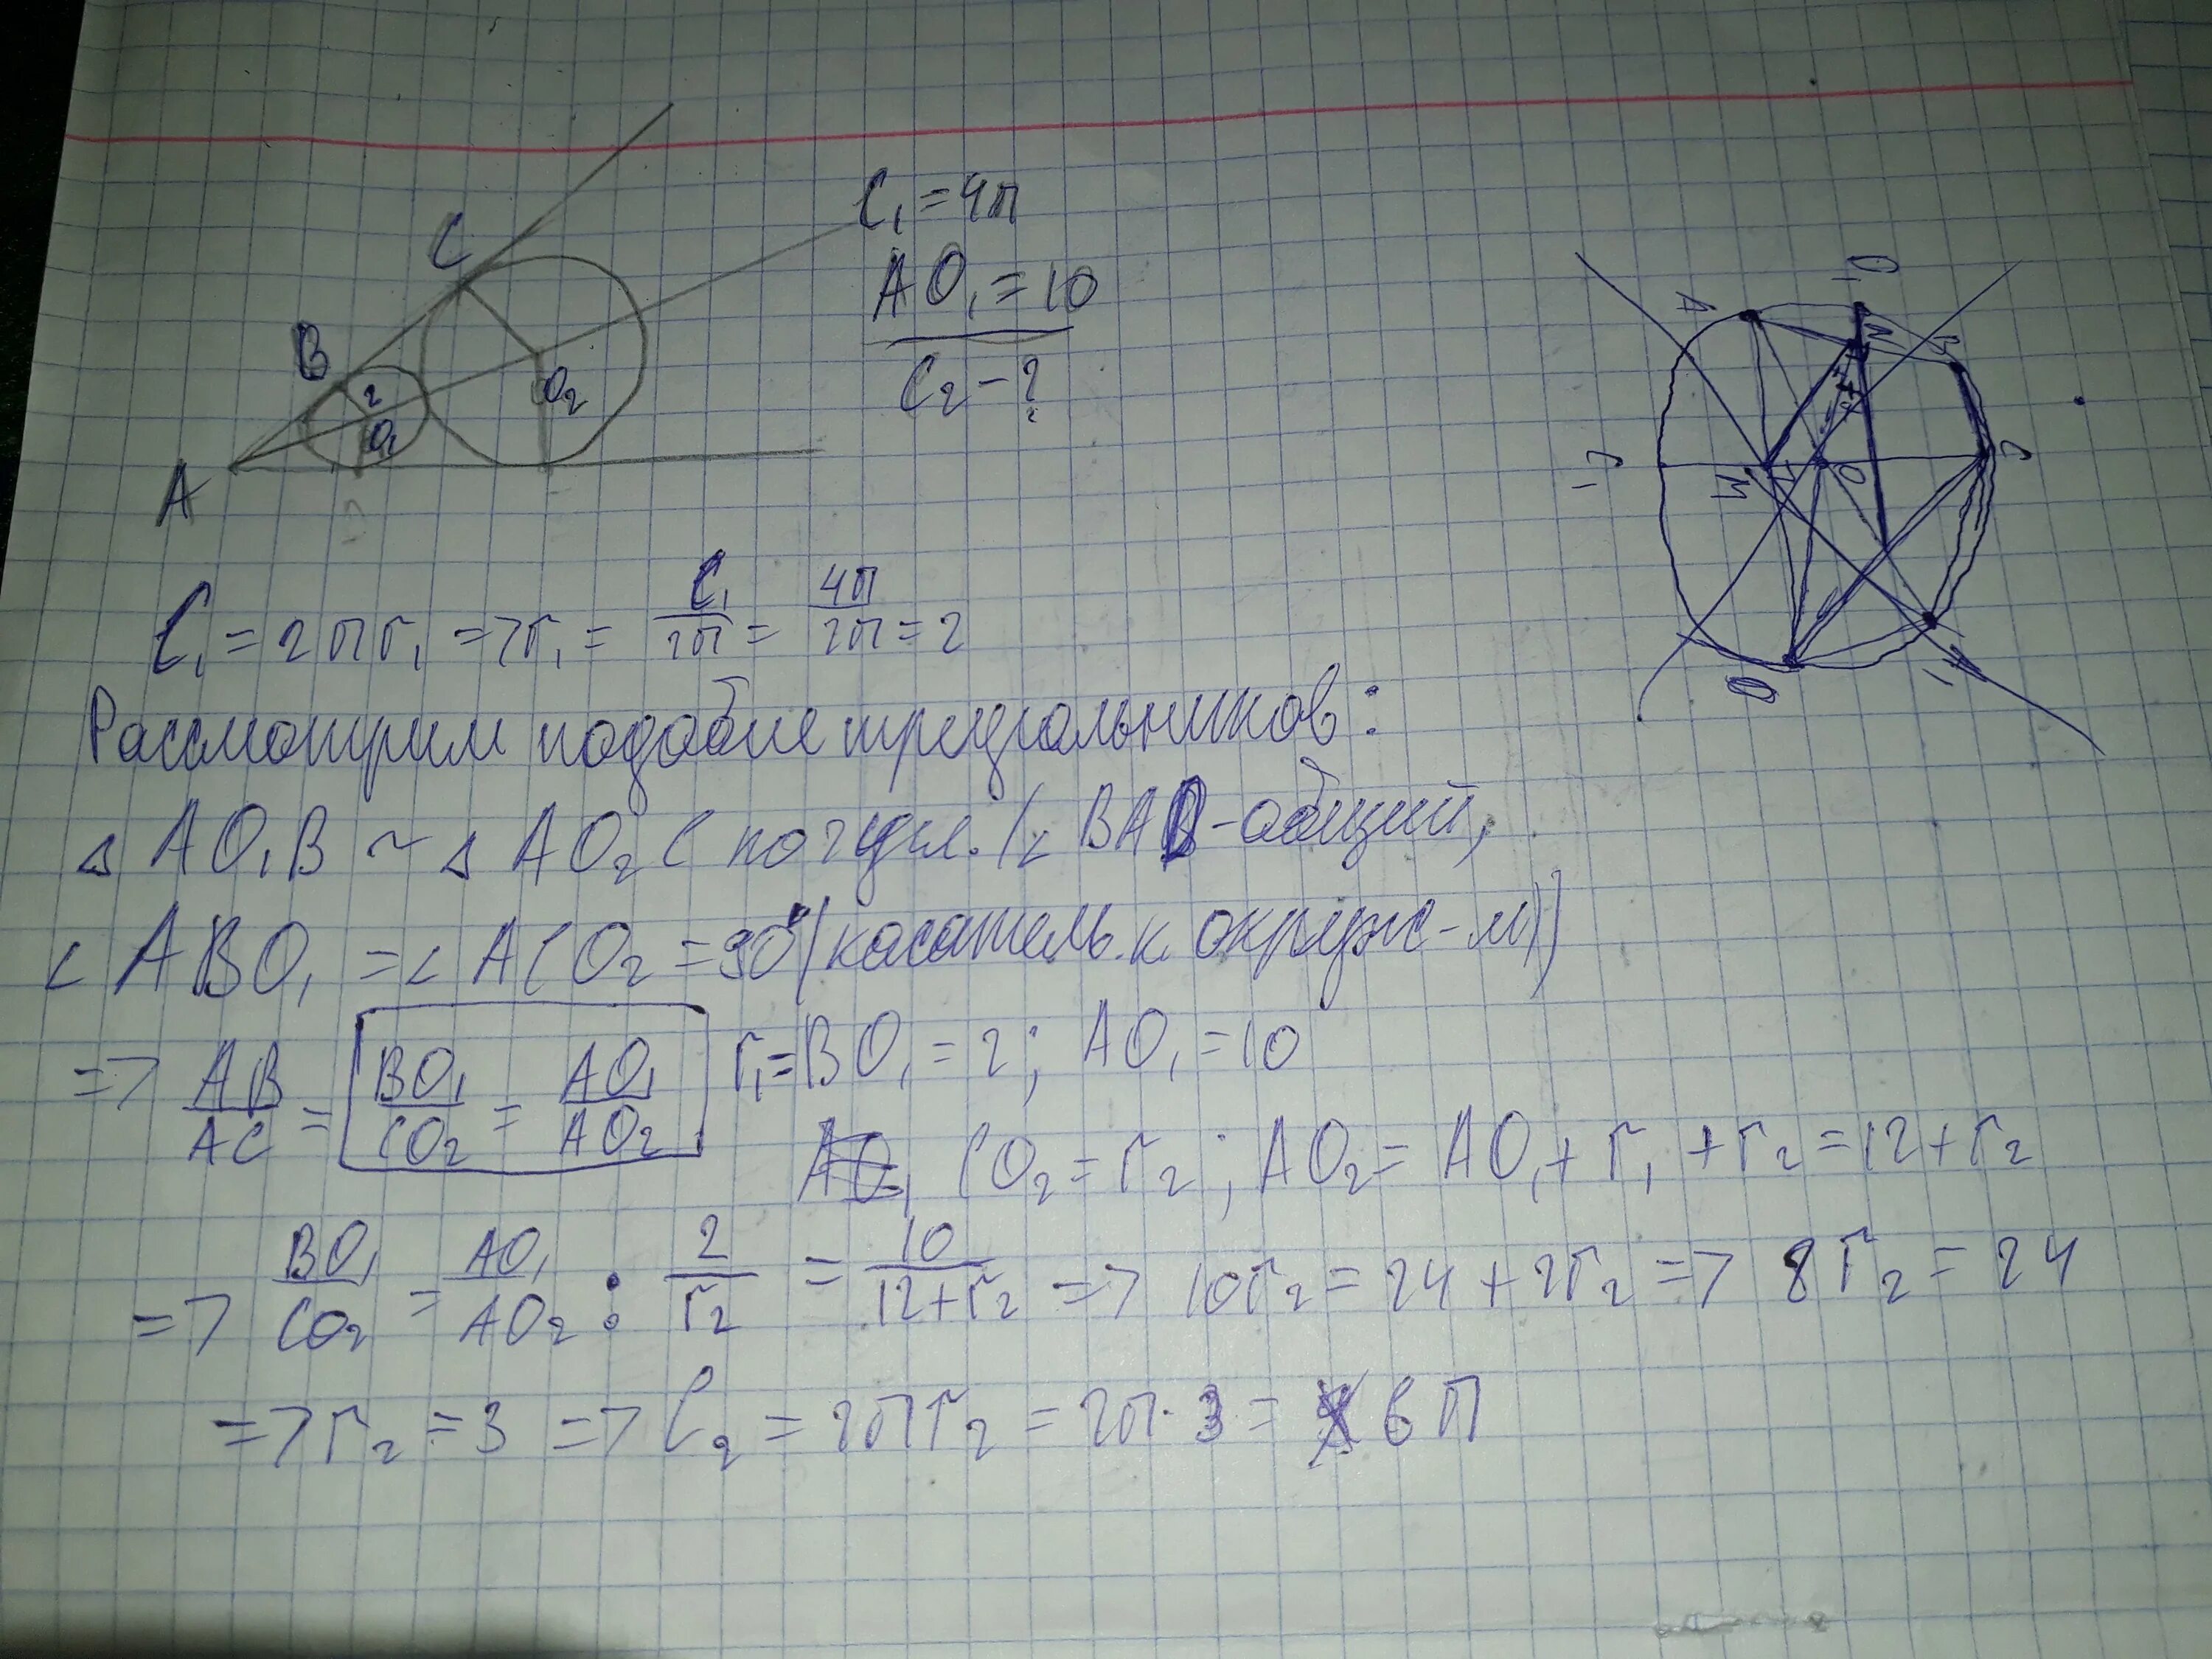 C₁ = 4π
AO₁ = 10
C₂ - ?
C
B
2
O₁
O₂
A
C₁ = 2πr₁ => r₁ = C₁/2π = 4π/2π = 2
Рассмотрим подобие треугольников:
△ AO₁B ~ △ AO₂C по 2 угл. (∠ BAO - общий,
∠ ABO₁ = ∠ ACO₂ = 90° (касатель. к окруж-м))
=> AB/AC = BO₁/CO₂ = AO₁/AO₂ r₁ = BO₁ = 2; AO₁ = 10
CO₂ = r₂; AO₂ = AO₁ + r₁ + r₂ = 12 + r₂
=> BO₁/CO₂ = AO₁/AO₂ : 2/r₂ = 10/12+r₂ => 10r₂ = 24 + 2r₂ => 8r₂ = 24
=> r₂ = 3 => C₂ = 2πr₂ = 2π·3 = 6π